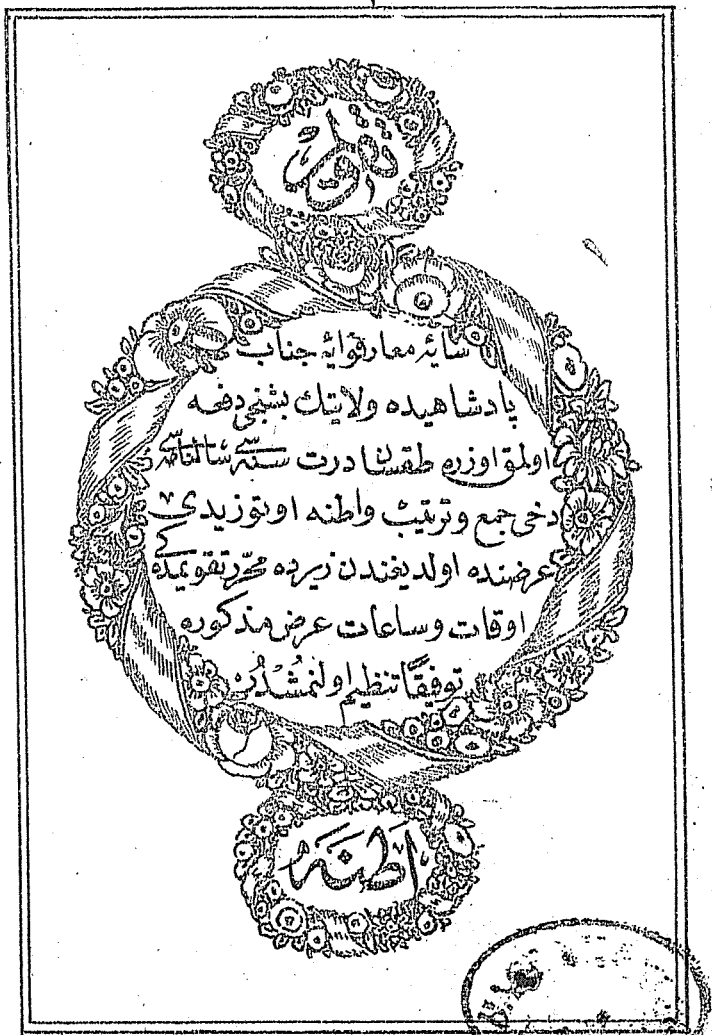 تقويم
سایهٔ معارفوایهٔ جناب
پادشاهیده ولایتك بشنجی دفعه
اولمق اوزره طقسان درت سنه‌سی سالنامه‌سی
دخی جمع وترتیب واطنه اوتوزیدی
عرضنده اولدیغندن زیرده محرر تقویمده‌كی
اوقات وساعات عرض مذكوره
توفیقًا تنظیم اولنمشدر
اطنه